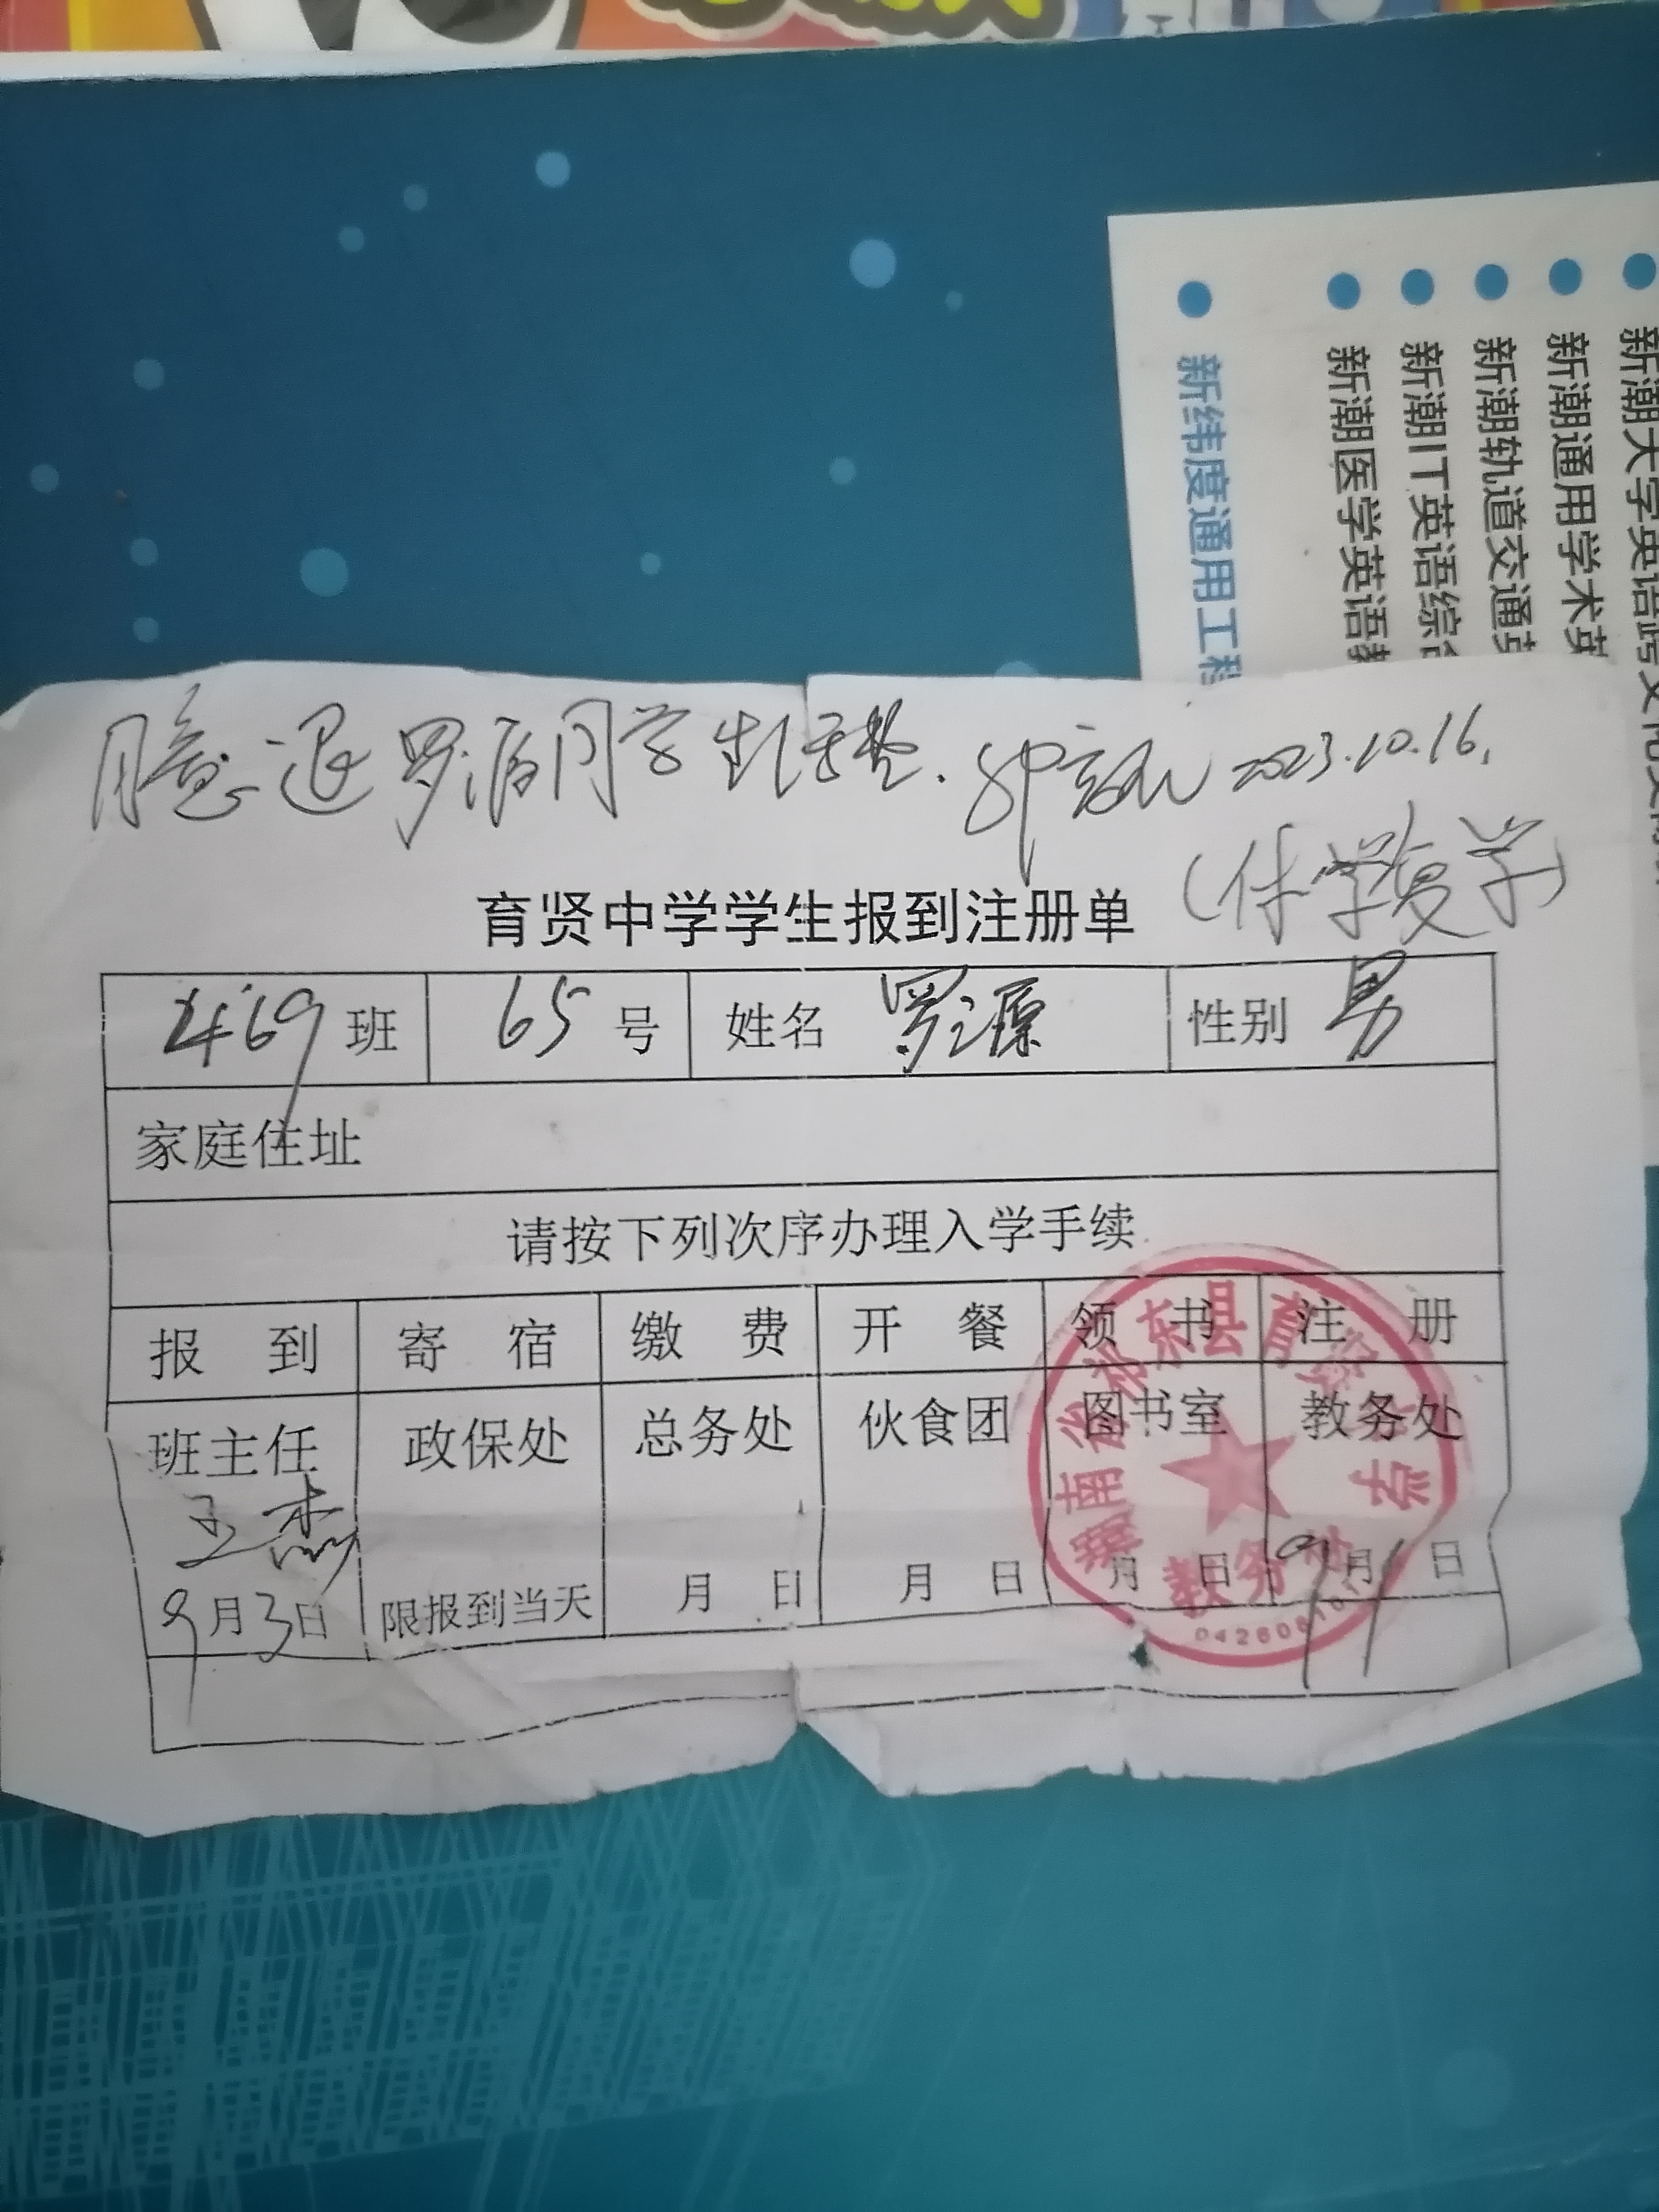 新潮大学英语跨文化交际
新潮通用学术英
新潮轨道交通英
新潮IT英语综合
新潮医学英语教
新纬度通用工程
退罗源同学 2023.10.16.
(休学复学)
育贤中学学生报到注册单
469班 65号 姓名 罗源 性别 男
家庭住址
请按下列次序办理入学手续
报到 寄宿 缴费 开餐 领书 注册
班主任 政保处 总务处 伙食团 图书室 教务处
王杰
9月3日 限报到当天 月 日 月 日 月 日 9月1日
湖南省祁东县育贤中学
教务处